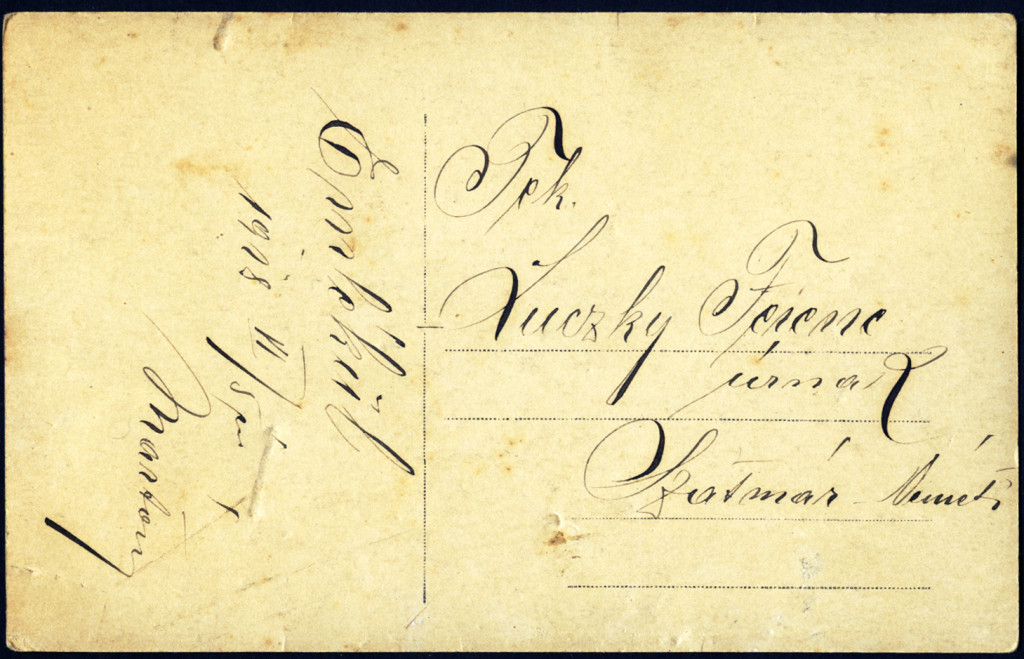 Emlékül
1918 VI/5 én
Márton
Tek.
Luczky Ferenc
úrnak
Szatmár-Németi